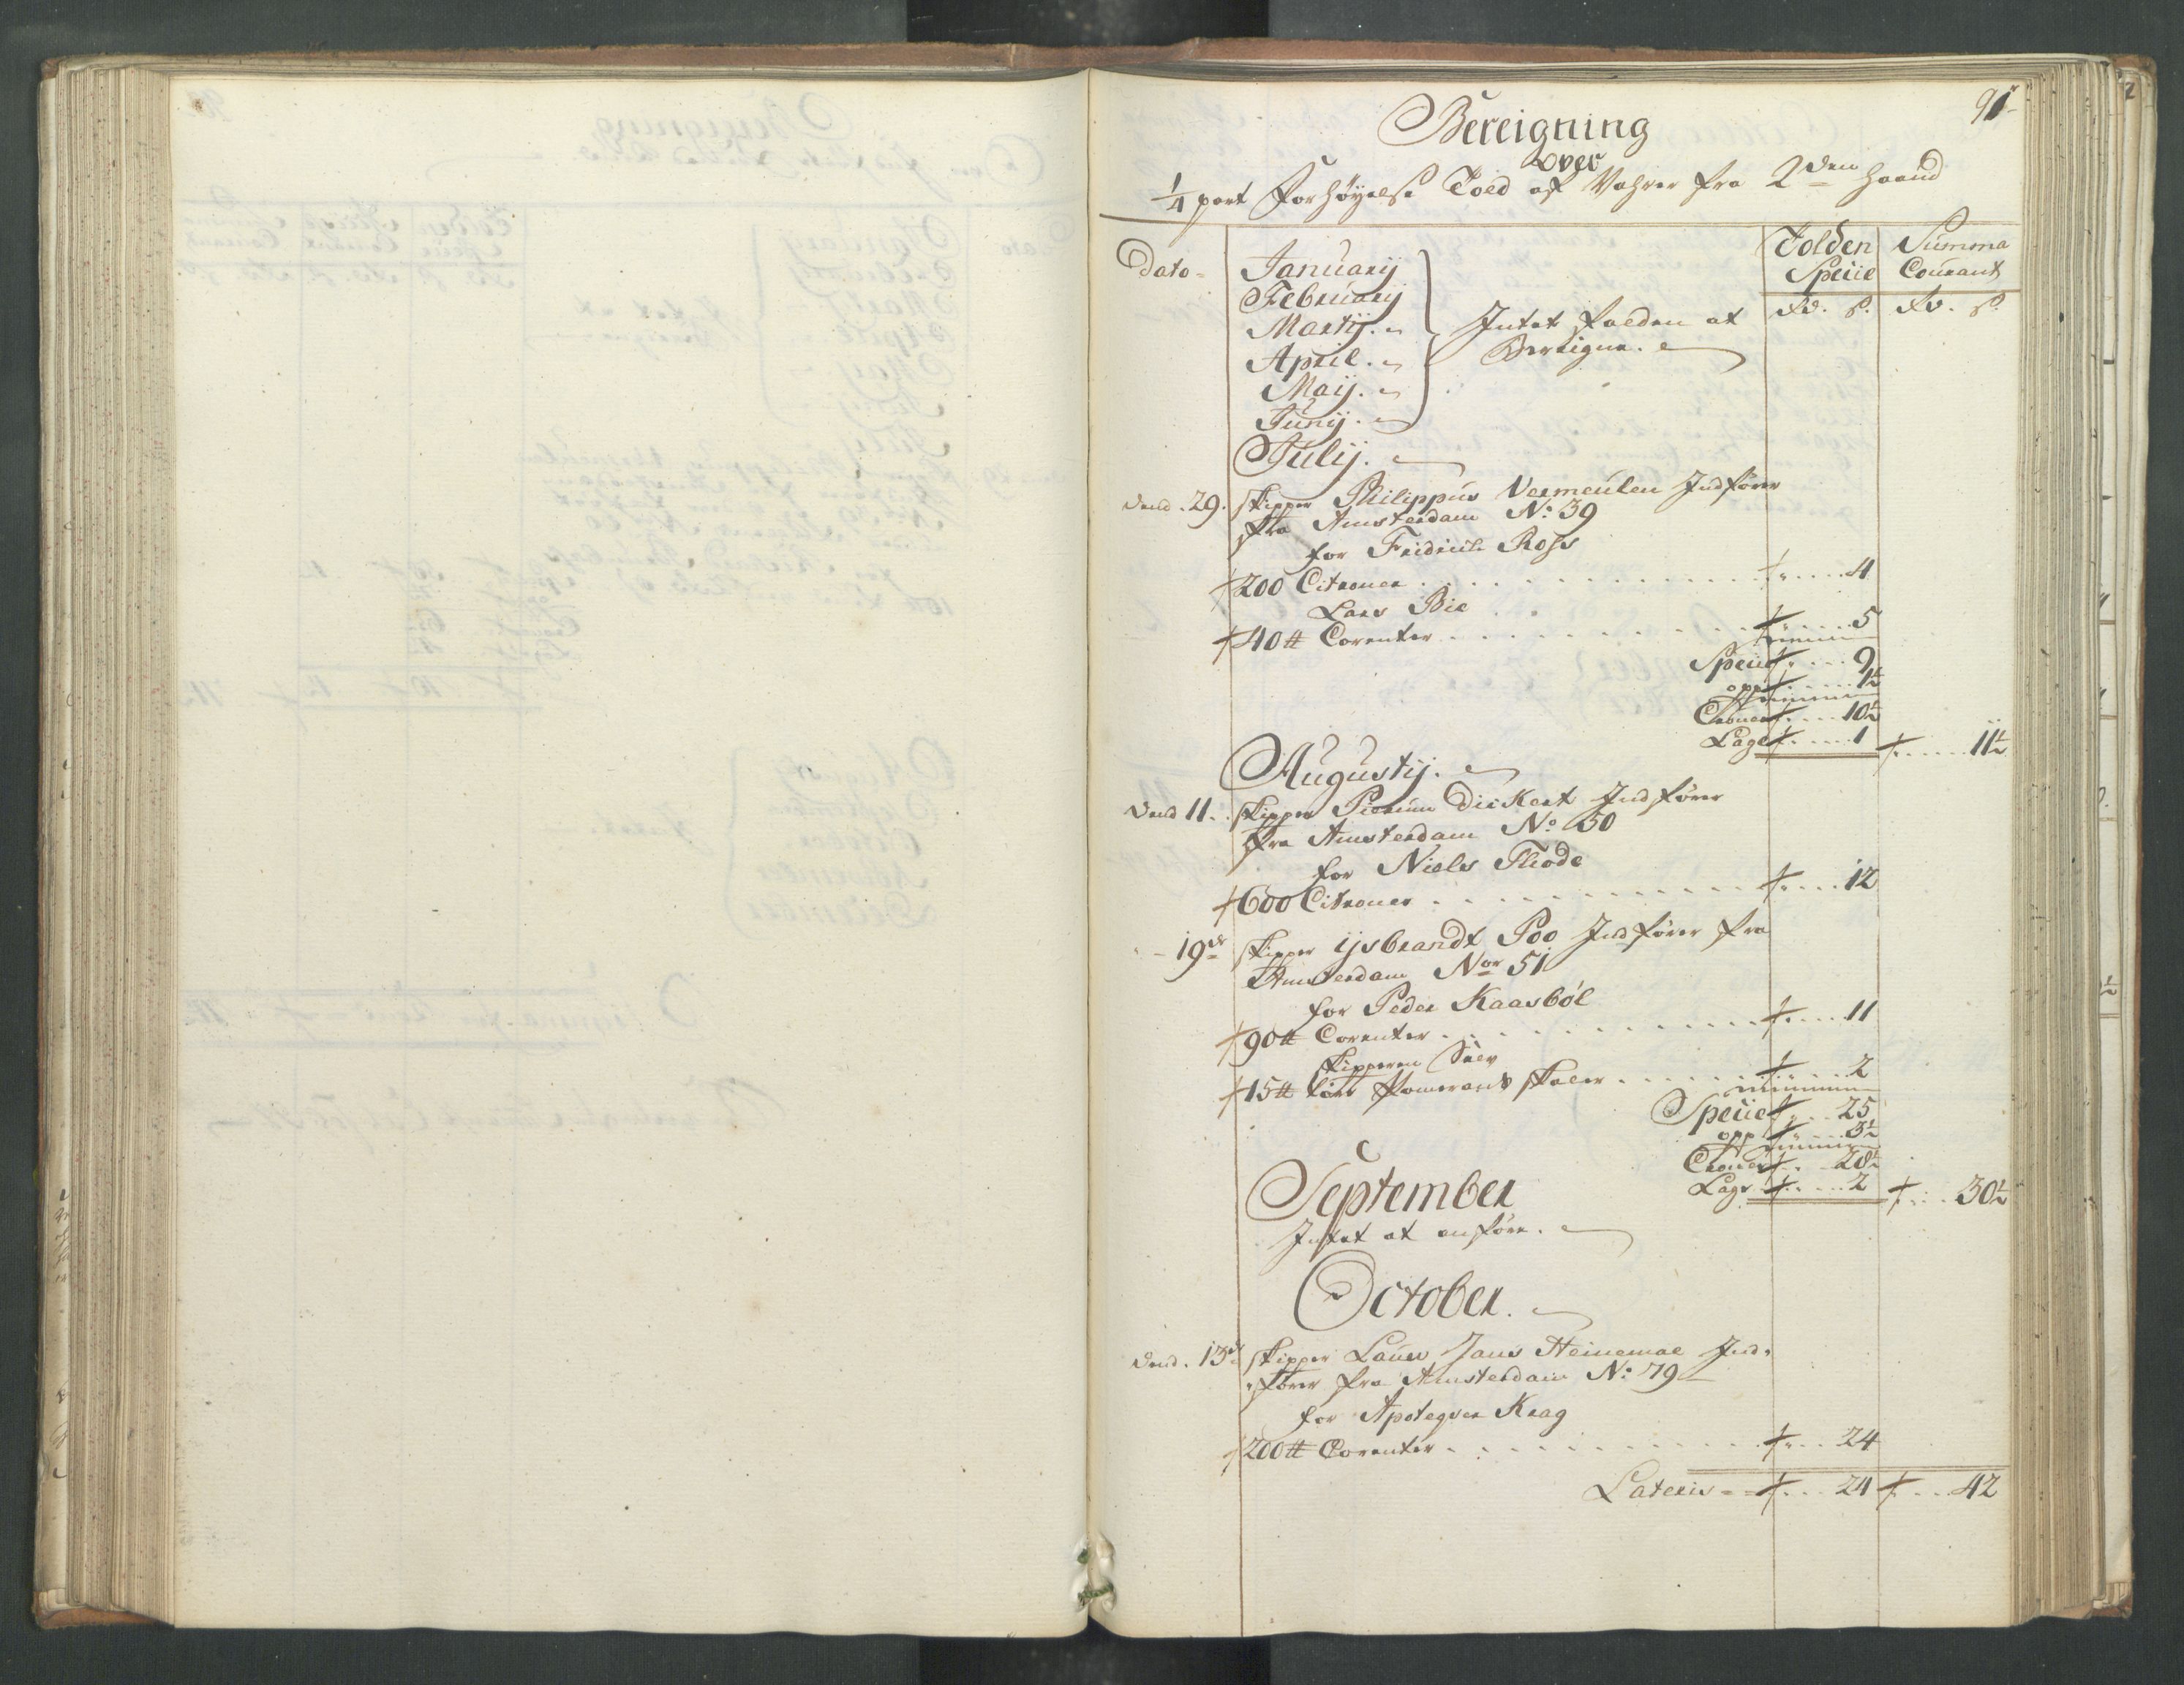 91
Bereigning
over
1/4 part Forhøyelse Told af Vahrer fra 2den Haand
Dato
Tolden Speciè
Summa Courant
Rd. s.
Rd. s.
Januarij
Februarij
Martij.
April.
Maij.
Junij.
Intet falden at
Bereigne.
Julij.
Dend. 29. Skipper Philippus Vermeulen Indfører
fra Amsterdam No: 39
for Fridrich Ross
200 Citroner 4
Lars Bie
40 ℔ Corenter 5
Speciè 9
opp 1½
Croner 10½
Lage 1 11½
Augustij.
Dend 11. Skipper Dirkert Indfører
fra Amsterdam No: 50
for Niels Thode
600 Citroner 12
19de Skipper ijsbrandt Poo Indfører fra
Amsterdam Nor 51
for Peder Kaasböl
90 ℔ Corenter 11
Skipperen Selv
15 ℔ Pomerants skaler 2
Speciè 25
opp 3½
Croner 28½
Lage 2 30½
September
Intet at anføre.
October.
Dend. 13de Skipper Laurs Jans Heinemae Ind-
fører fra Amsterdam No: 79
for Apoteqver Krag
200 ℔ Corenter 24
Lateris 24 42